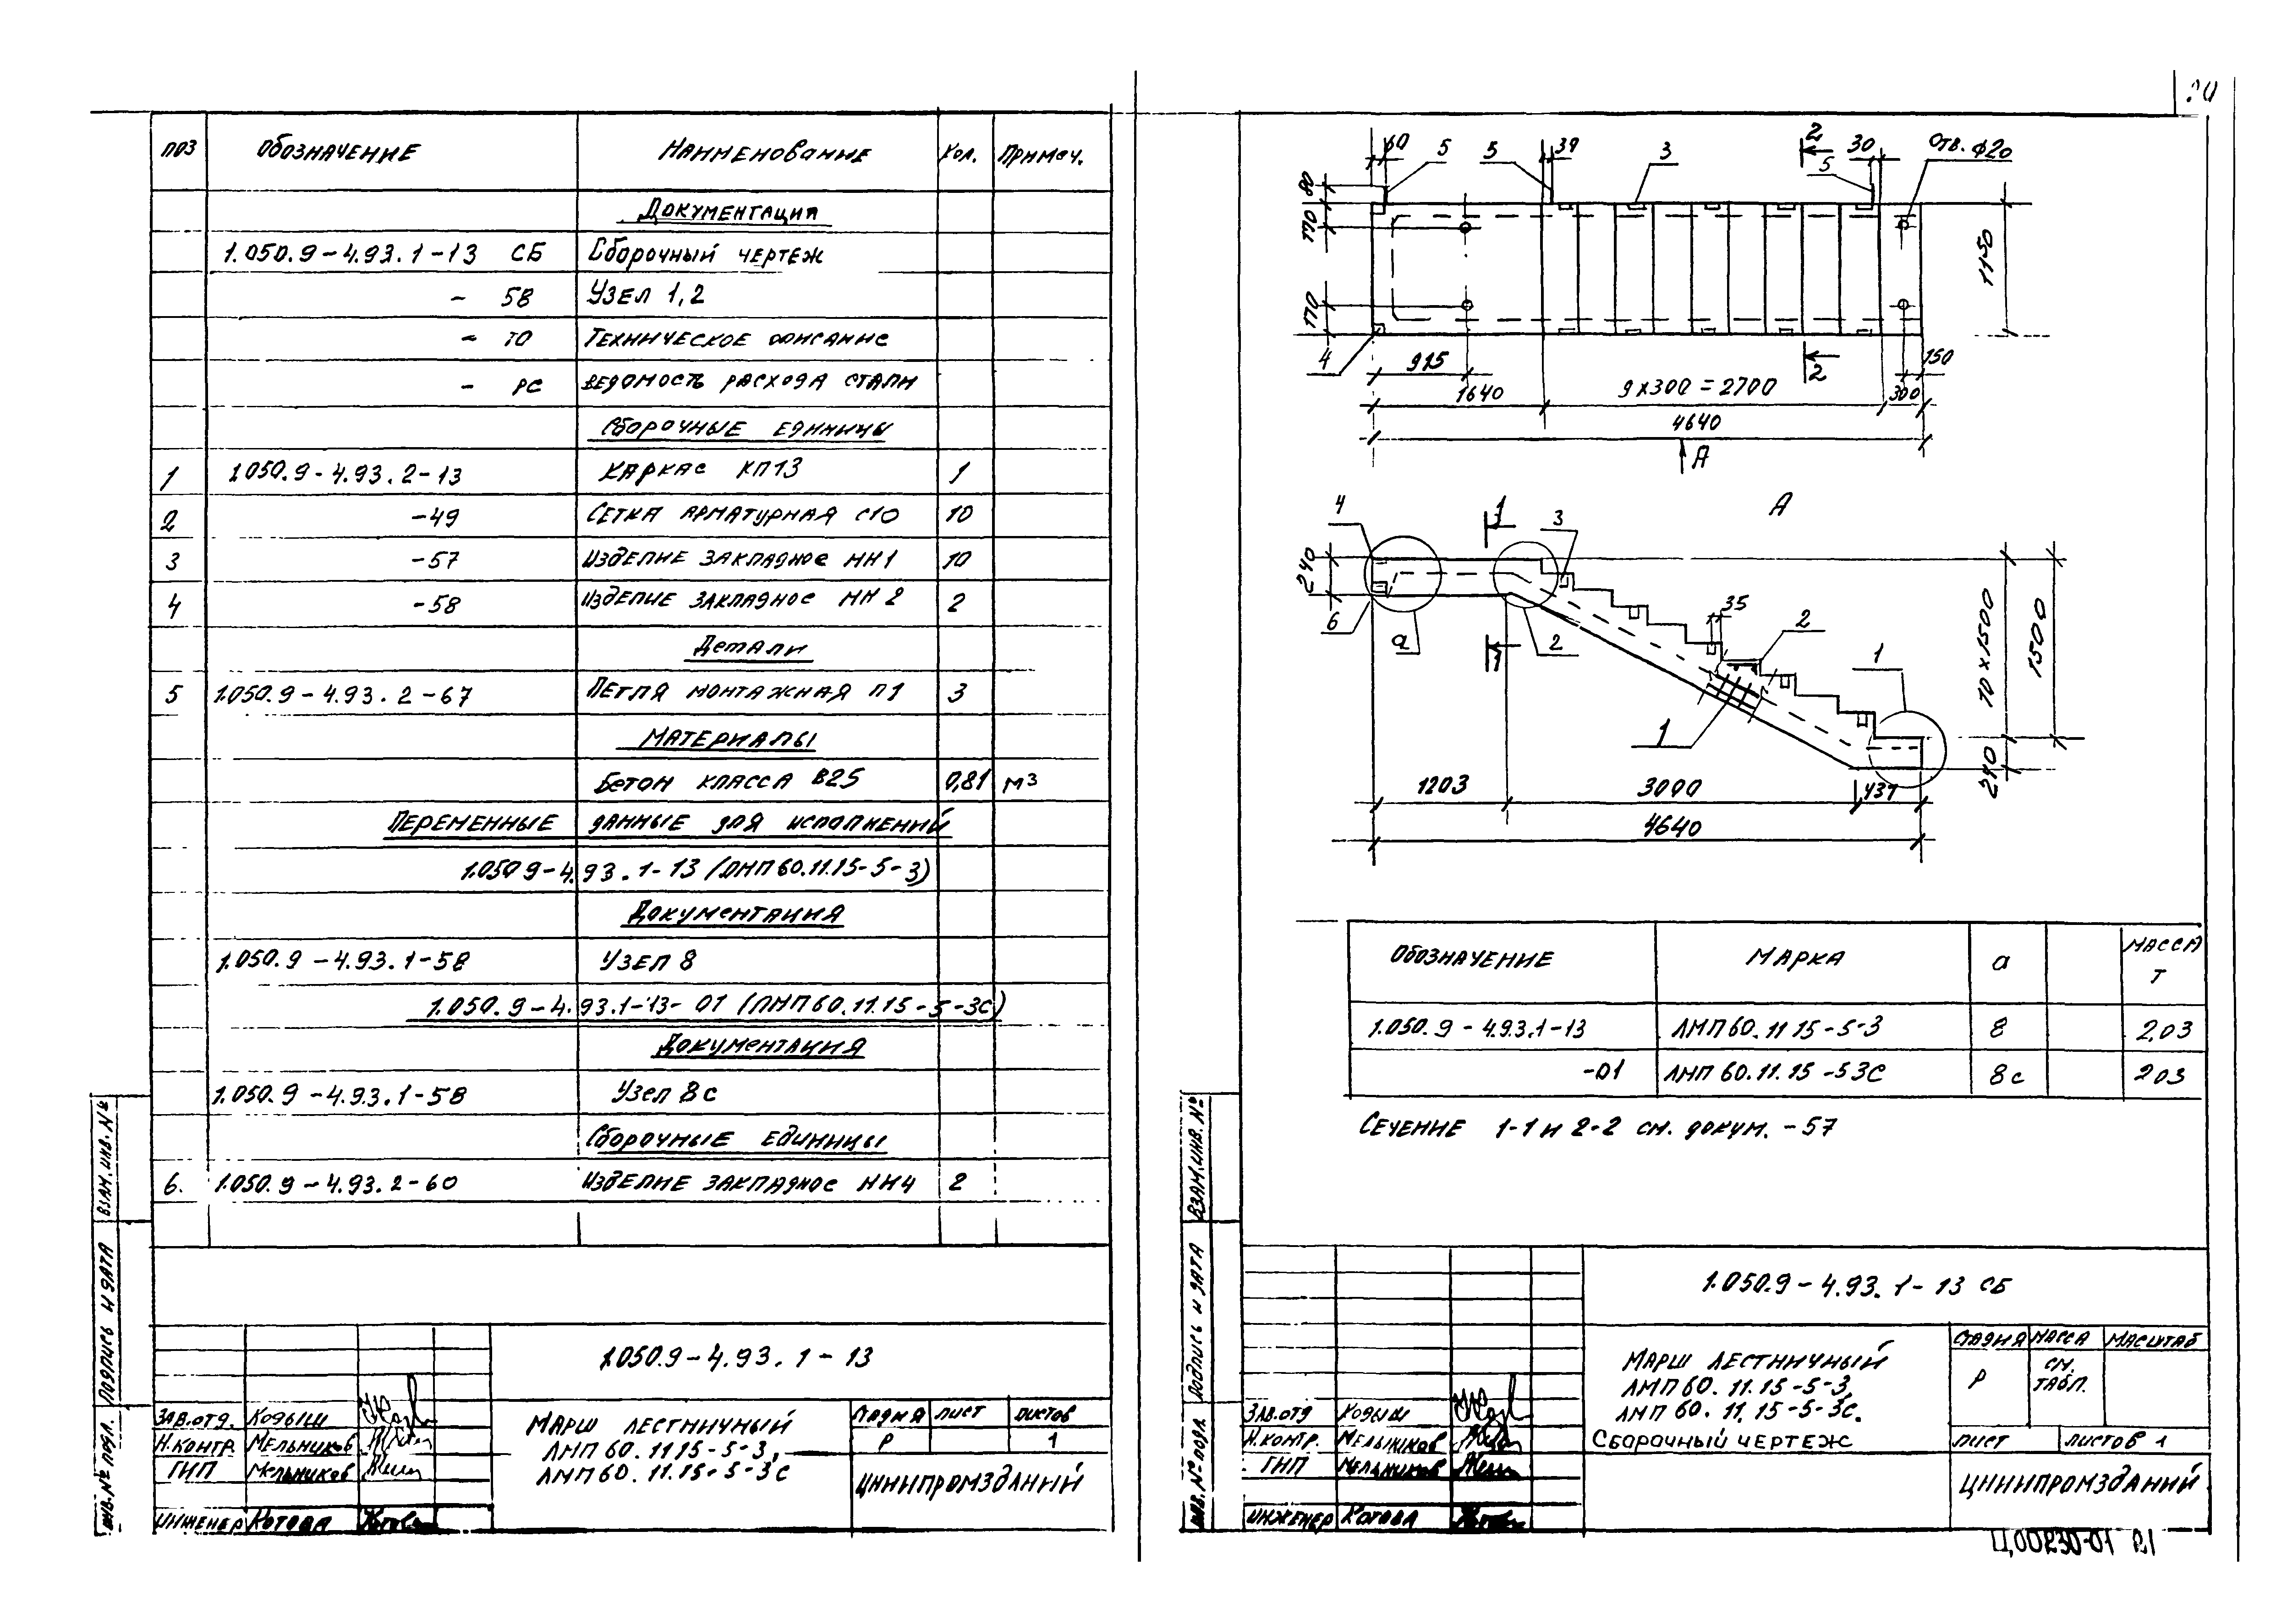 ПОЗ Обозначение Наименование Кол. Примеч.
Документация
1.050.9-4.93.1-13 СБ Сборочный чертеж
- 58 Узел 1,2
- ТО Техническое описание
- РС Ведомость расхода стали
Сборочные единицы
1 1.050.9-4.93.2-13 Каркас КП13 1
2 -49 Сетка арматурная С10 10
3 -57 Изделие закладное МН1 10
4 -58 Изделие закладное МН2 2
Детали
5 1.050.9-4.93.2-67 Петля монтажная П1 3
Материалы
Бетон класса В25 0,81 м3
Переменные данные для исполнений
1.050 9-4.93.1-13 (ЛМП60.11.15-5-3)
Документация
1.050.9-4.93.1-58 Узел 8
1.050.9-4.93.1-13-01 (ЛМП60.11.15-5-3С)
Документация
1.050.9-4.93.1-58 Узел 8с
Сборочные единицы
6. 1.050.9-4.93.2-60 Изделие закладное МН4 2
1.050.9-4.93.1-13
Зав.отд. Кодыш
Н.контр. Мельников
ГИП Мельников
Инженер Котова
Марш лестничный
ЛМП 60.11.15-5-3,
ЛМП60.11.15-5-3С
Стадия Лист Листов
Р 1
ЦНИИПРОМЗДАНИЙ
Взам.инв.№
Подпись и дата
Инв.№ подл.
60 5 5 39 3 2 30 5 Отв. ф20
80
170
170
1150
4 915 2 150
1640 9х300=2700 300
4640
А
А
4 1 3
240
6 а 1 2 35 2 1
1
10х1500
1500
240
1203 3000 437
4640
Обозначение Марка а Масса
Т
1.050.9-4.93.1-13 ЛМП60.11 15-5-3 8 2,03
-01 ЛМП 60.11.15-53С 8с 203
Сечение 1-1 и 2-2 см. докум. -57
1.050.9-4.93.1-13 СБ
Зав.отд Кодыш
Н.контр. Мельников
ГИП Мельников
Инженер Котова
Марш лестничный
ЛМП60.11.15-5-3,
ЛМП 60.11.15-5-3С.
Сборочный чертеж
Стадия Масса Масштаб
Р см.
табл.
Лист Листов 1
ЦНИИПРОМЗДАНИЙ
Взам.инв.№
Подпись и дата
Инв.№ подл
Ц00230-01 21